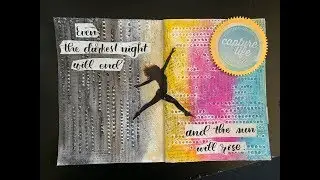 Even
the darkest night
will end
and the sun
will rise
capture
life